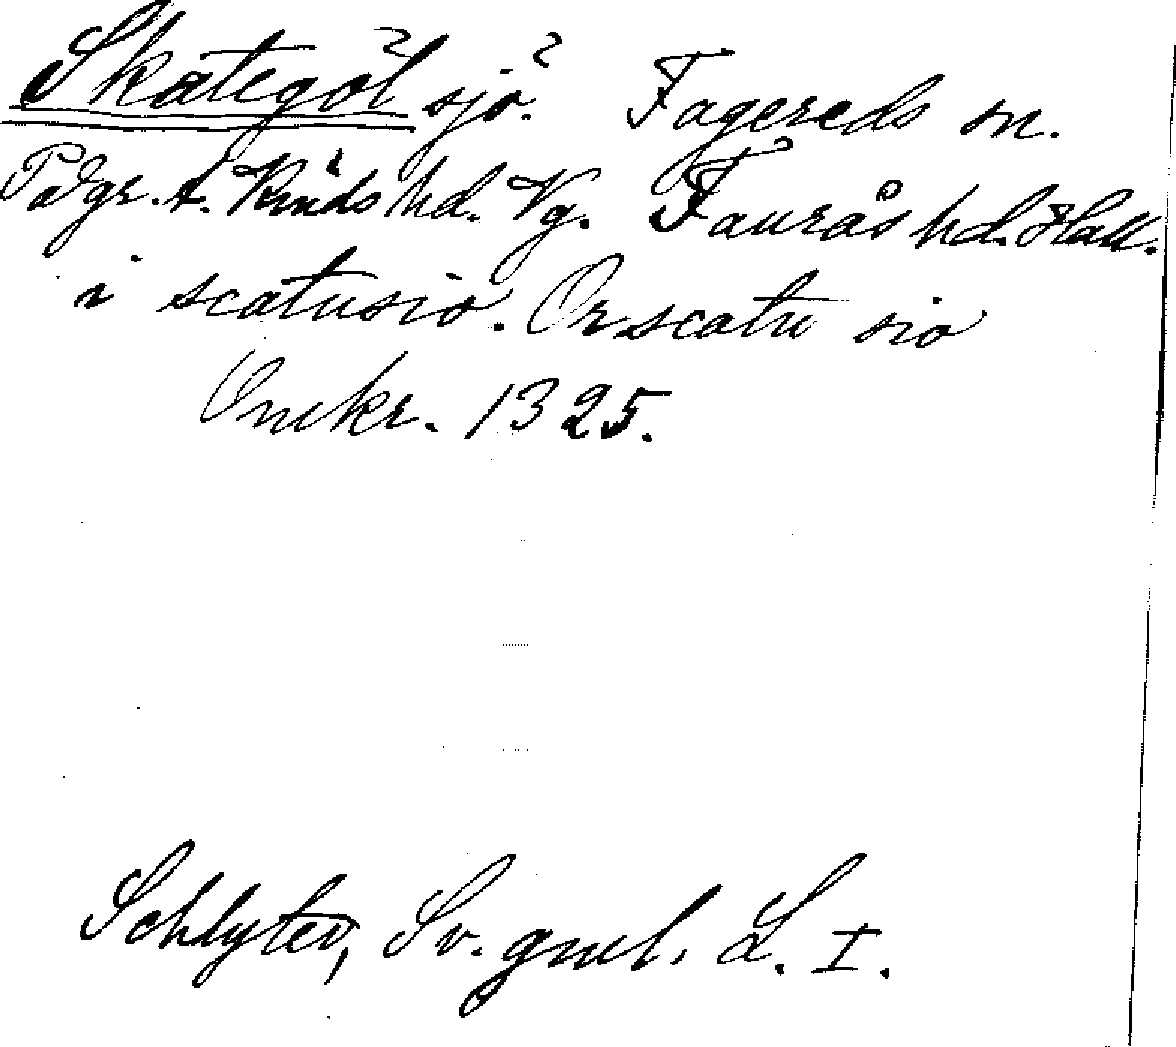 Skategöl sjö. Fagereds sn.
På gr. t. Kinds hd. Vg. Faurås hd. Hall.
i scatusio. Or scatu sio
Omkr. 1325.
Schlyter, Sv. gml. L. I.